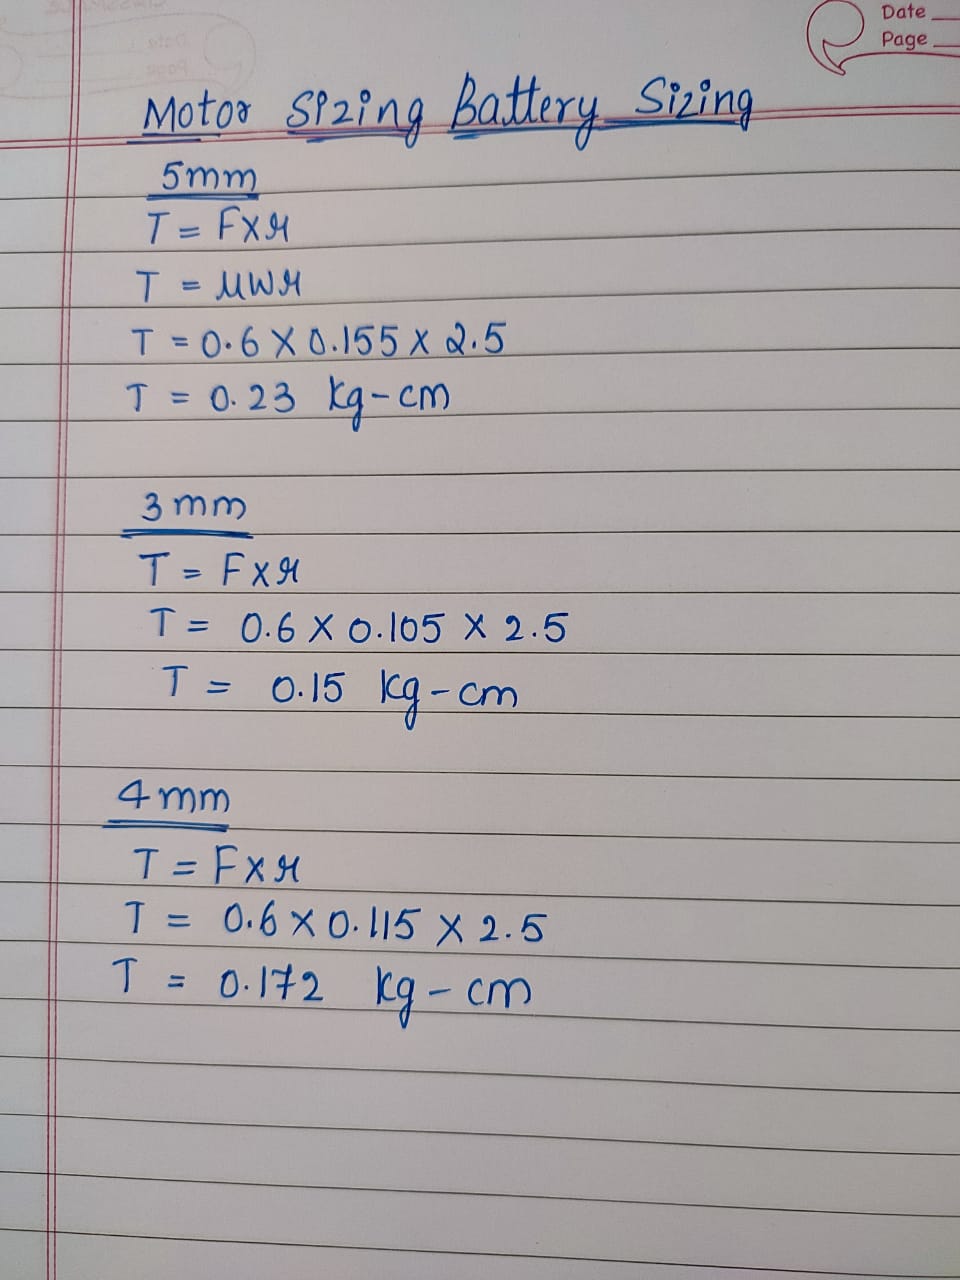 Date
Page
Motor Sizing Battery Sizing
5mm
T = F×r
T = μwr
T = 0.6 × 0.155 × 2.5
T = 0.23 kg-cm
3 mm
T = F×r
T = 0.6 × 0.105 × 2.5
T = 0.15 kg-cm
4 mm
T = F×r
T = 0.6 × 0.115 × 2.5
T = 0.172 kg-cm